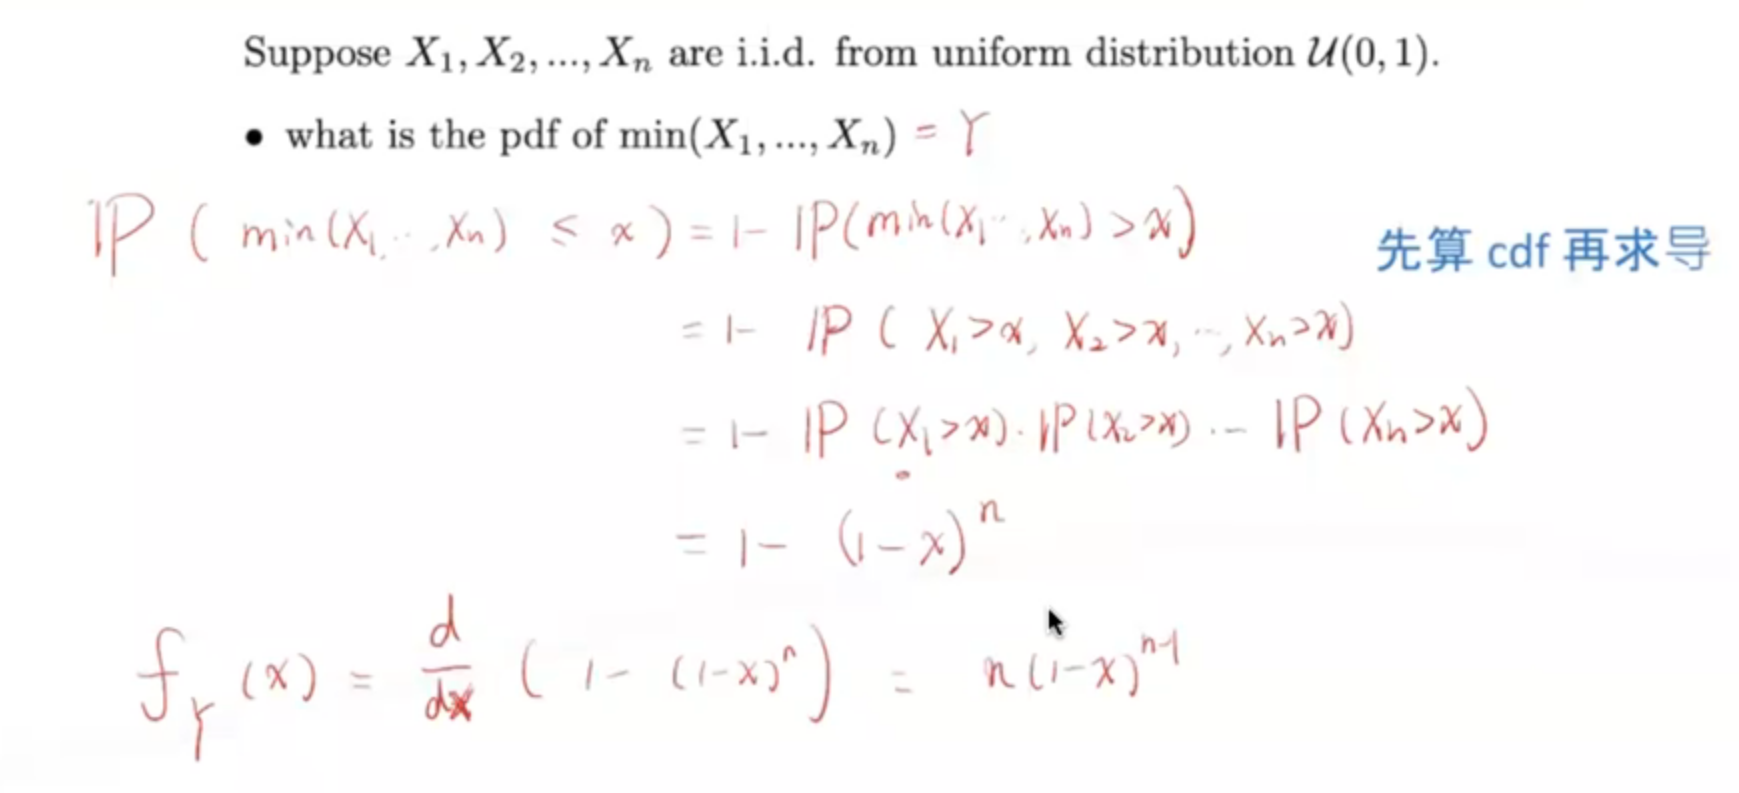 Suppose X₁, X₂, ..., Xₙ are i.i.d. from uniform distribution 𝒰(0, 1).
• what is the pdf of min(X₁, ..., Xₙ) = Y
ℙ ( min(X₁, ..., Xₙ) ≤ x ) = 1 - ℙ(min(X₁ ..., Xₙ) > x)
先算 cdf 再求导
= 1 - ℙ ( X₁>x, X₂>x, ..., Xₙ>x)
= 1 - ℙ (X₁>x) · ℙ(X₂>x) ... ℙ (Xₙ>x)
= 1 - (1-x)ⁿ
f_Y (x) = d/dx ( 1 - (1-x)ⁿ ) = n(1-x)ⁿ⁻¹